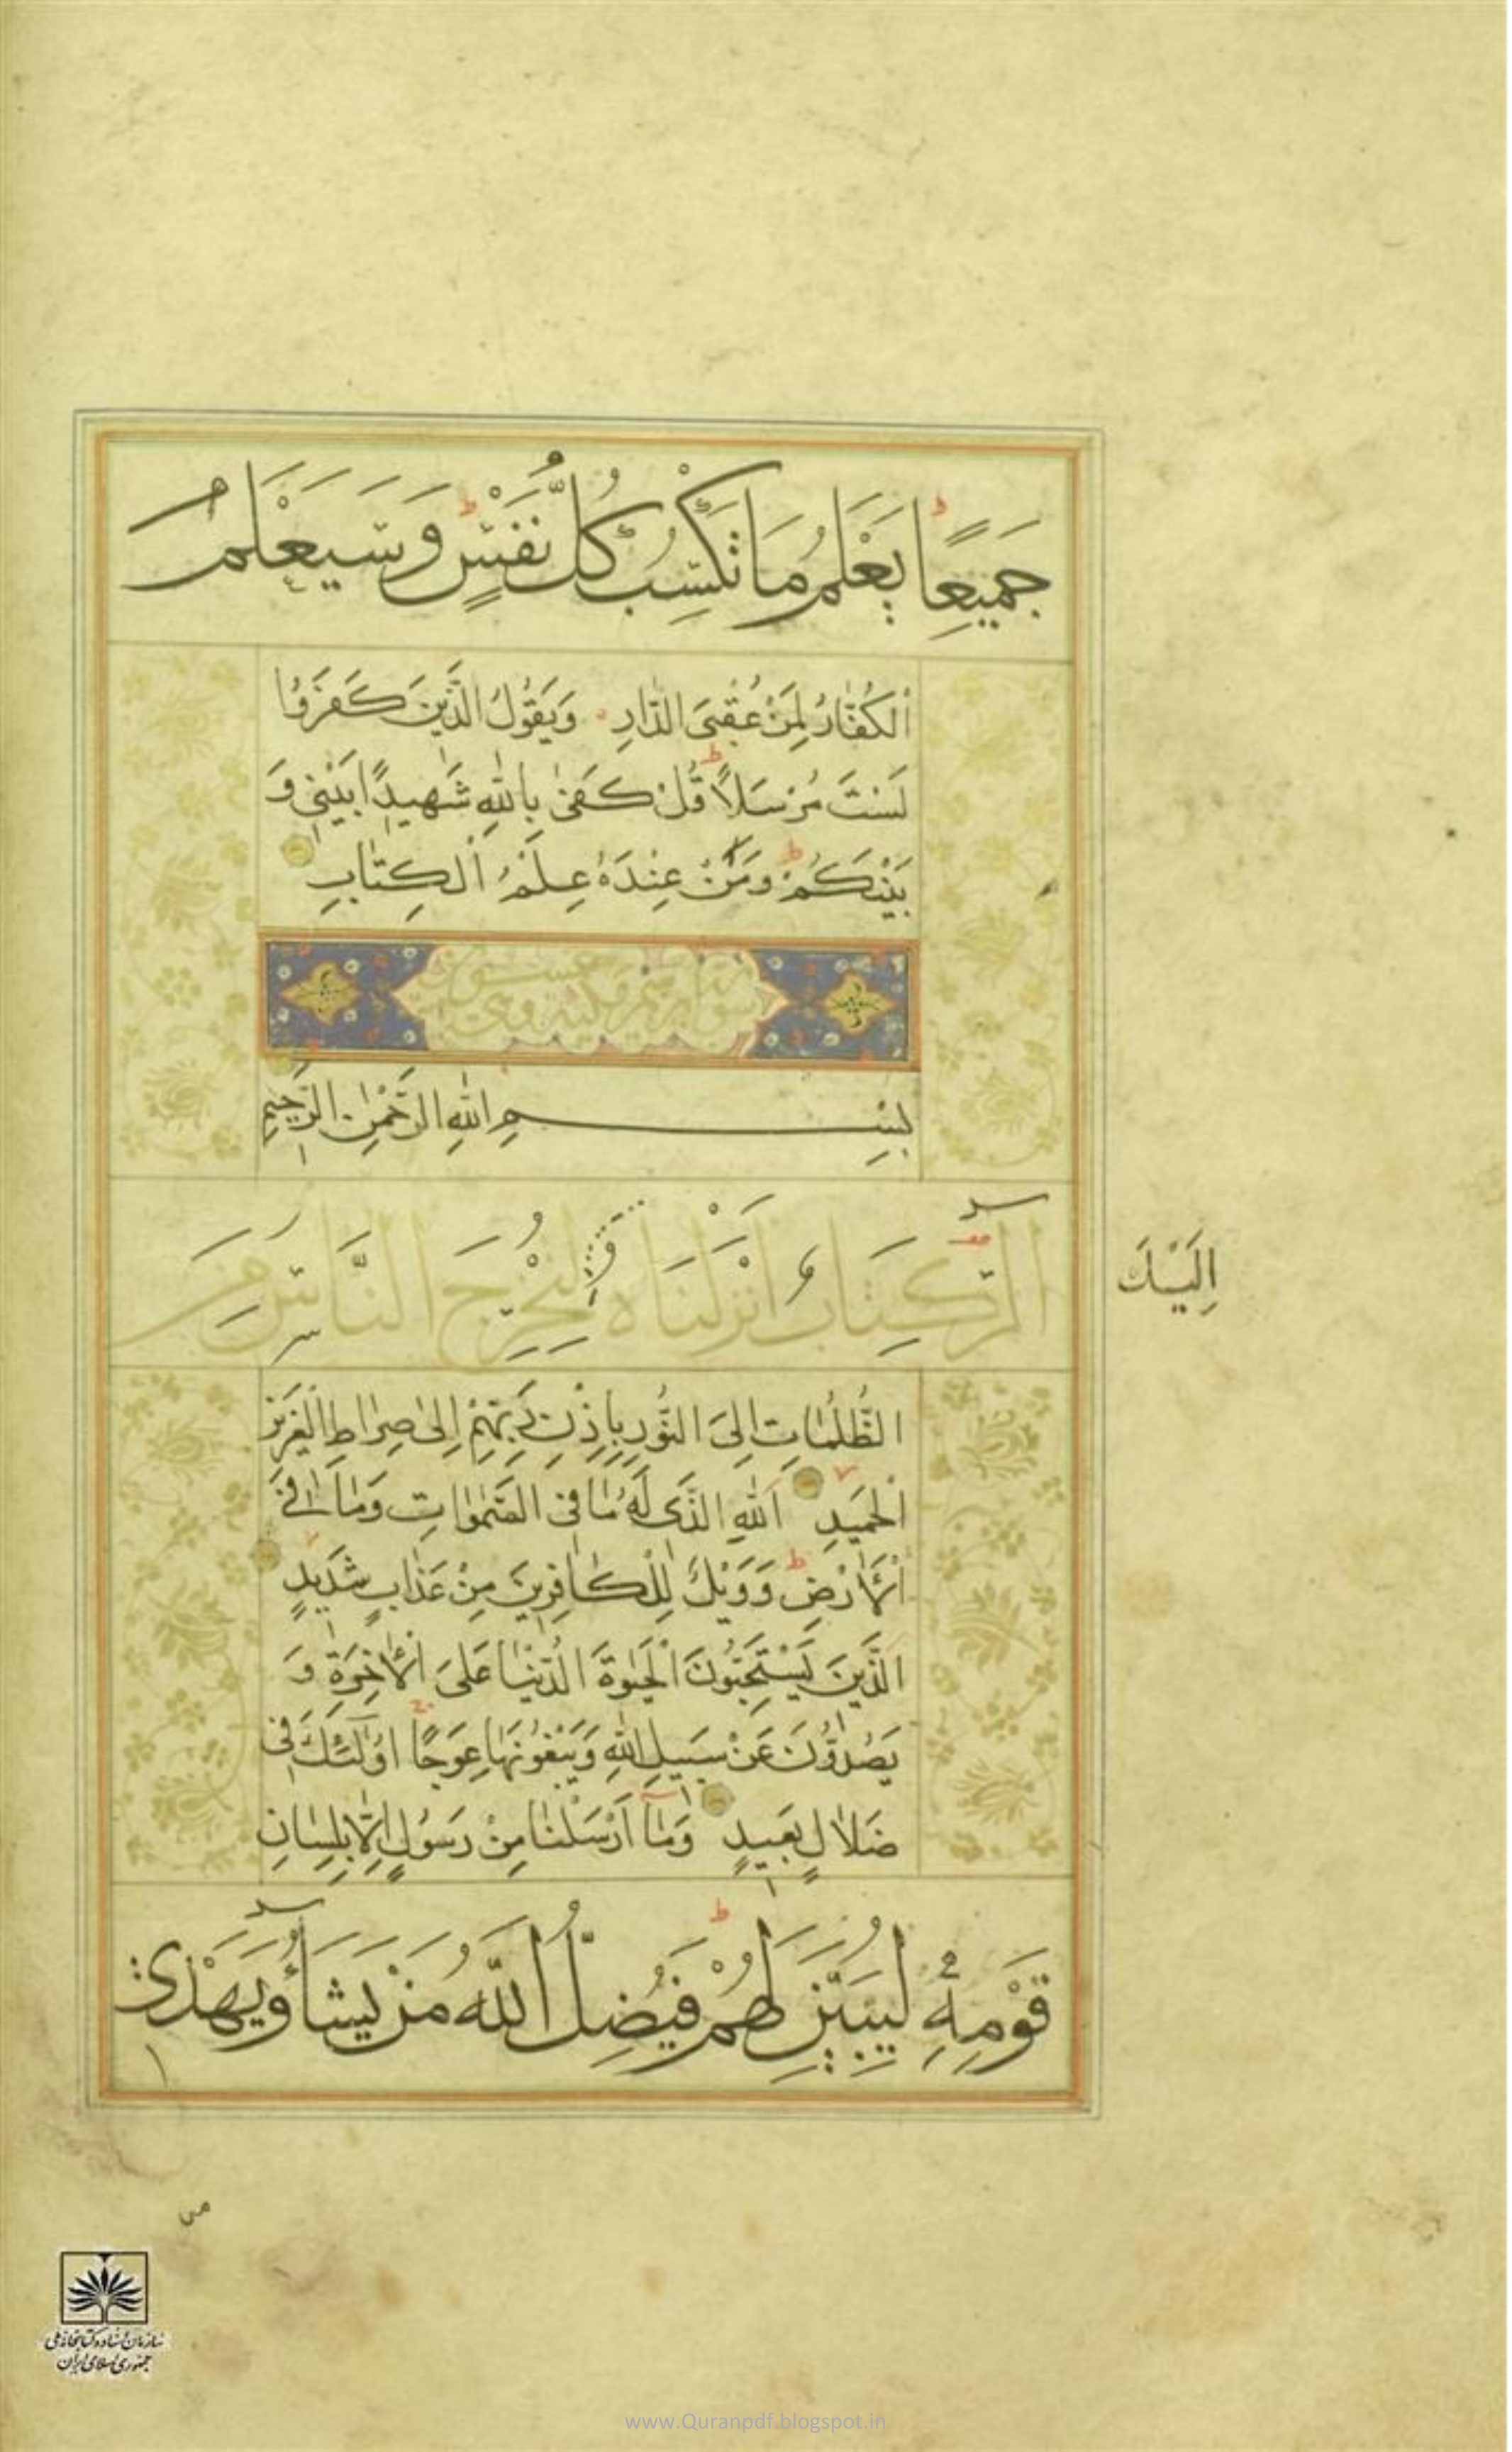 جَمِيعًا يَعْلَمُ مَا تَكْسِبُ كُلُّ نَفْسٍ وَسَيَعْلَمُ
الْكُفَّارُ لِمَنْ عُقْبَى الدَّارِ وَيَقُولُ الَّذِينَ كَفَرُوا
لَسْتَ مُرْسَلًا قُلْ كَفَىٰ بِاللَّهِ شَهِيدًا بَيْنِي وَ
بَيْنَكُمْ وَمَنْ عِنْدَهُ عِلْمُ الْكِتَابِ
بِسْمِ اللَّهِ الرَّحْمٰنِ الرَّحِيمِ
الر كِتَابٌ أَنْزَلْنَاهُ لِتُخْرِجَ النَّاسَ مِنَ
إِلَيْكَ
الظُّلُمَاتِ إِلَى النُّورِ بِإِذْنِ رَبِّهِمْ إِلَىٰ صِرَاطِ الْعَزِيزِ
الْحَمِيدِ اللَّهِ الَّذِي لَهُ مَا فِي السَّمٰوَاتِ وَمَا فِي
الْأَرْضِ وَوَيْلٌ لِلْكَافِرِينَ مِنْ عَذَابٍ شَدِيدٍ
الَّذِينَ يَسْتَحِبُّونَ الْحَيٰوةَ الدُّنْيَا عَلَى الْآخِرَةِ وَ
يَصُدُّونَ عَنْ سَبِيلِ اللَّهِ وَيَبْغُونَهَا عِوَجًا أُولٰئِكَ فِي
ضَلَالٍ بَعِيدٍ وَمَا أَرْسَلْنَا مِنْ رَسُولٍ إِلَّا بِلِسَانِ
قَوْمِهِ لِيُبَيِّنَ لَهُمْ فَيُضِلُّ اللَّهُ مَنْ يَشَاءُ وَيَهْدِي
سازمان اسناد و کتابخانه ملی
جمهوری اسلامی ایران
www.Quranpdf.blogspot.in